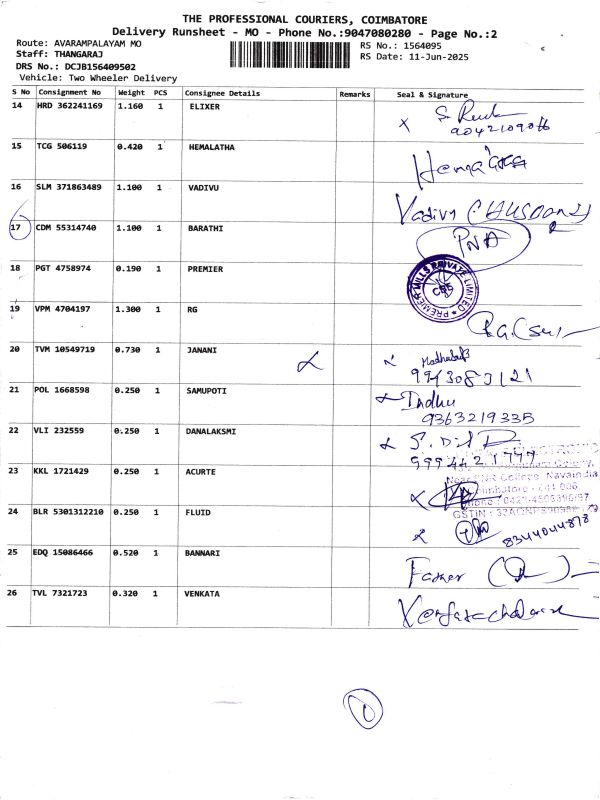 THE PROFESSIONAL COURIERS, COIMBATORE
Delivery Runsheet - MO - Phone No.:9047080280 - Page No.:2
Route: AVARAMPALAYAM MO
Staff: THANGARAJ
DRS No.: DCJB156409502
Vehicle: Two Wheeler Delivery
RS No.: 1564095
RS Date: 11-Jun-2025
S No Consignment No Weight PCS Consignee Details Remarks Seal & Signature
14 HRD 362241169 1.160 1 ELIXER
15 TCG 506119 0.420 1 HEMALATHA
16 SLM 371863489 1.100 1 VADIVU
17 CDM 55314740 1.100 1 BARATHI PNA
18 PGT 4758974 0.190 1 PREMIER PREMIER MILLS PRIVATE LIMITED CBE
19 VPM 4704197 1.300 1 RG
20 TVM 10549719 0.730 1 JANANI
21 POL 1668598 0.250 1 SAMUPOTI Indhu
9363219335
22 VLI 232559 0.250 1 DANALAKSMI
23 KKL 1721429 0.250 1 ACURTE
24 BLR 5301312210 0.250 1 FLUID 8344044878
25 EDQ 15086466 0.520 1 BANNARI
26 TVL 7321723 0.320 1 VENKATA